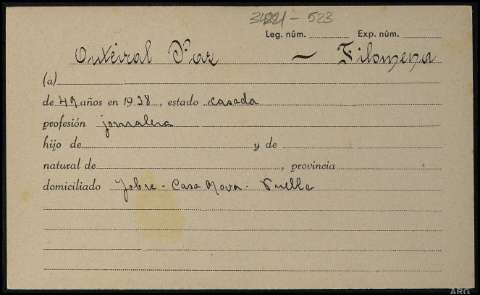 34221 - 523
Leg. núm. Exp. núm.
Outeiral Paz — Filomena
(a)
de 49 años en 1938, estado casada
profesión jornalera
hijo de y de
natural de , provincia
domiciliado Jobre - Casa Nova - Puebla
ARG